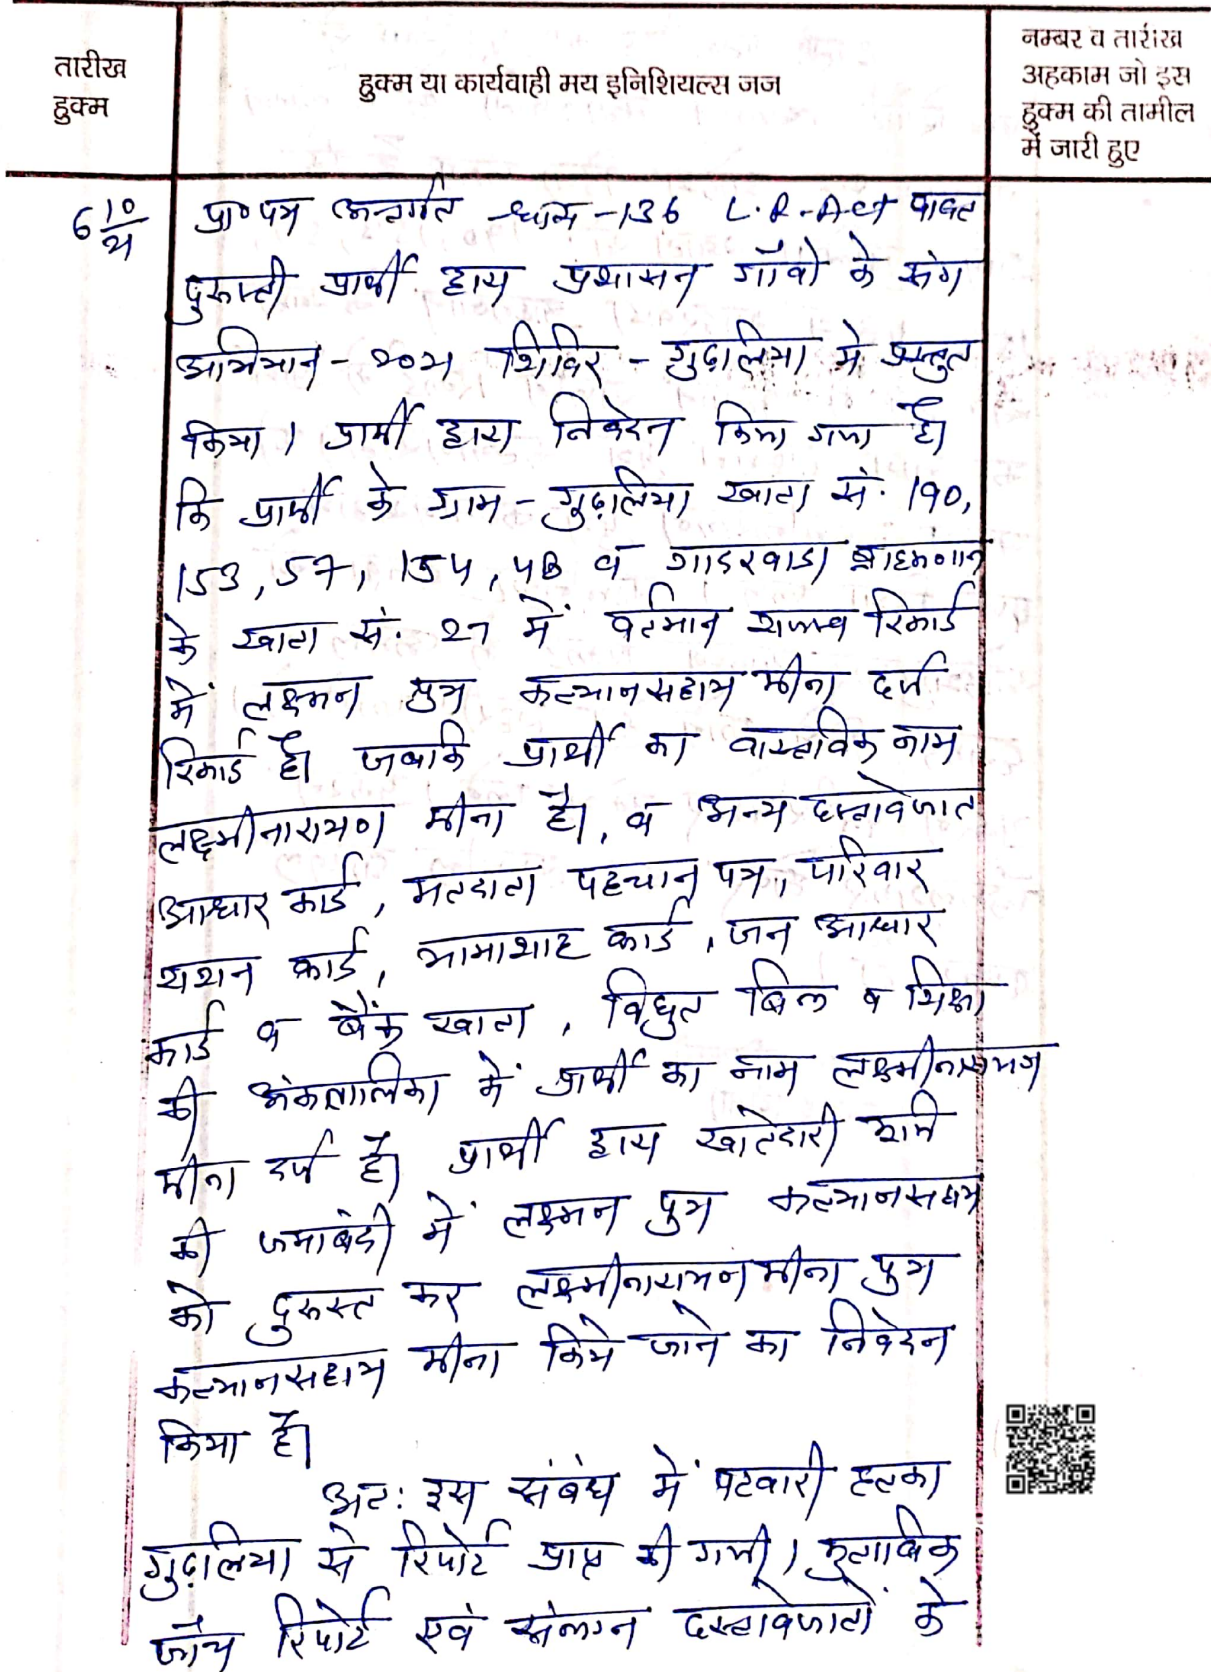 तारीख
हुक्म
हुक्म या कार्यवाही मय इनिशियल्स जज
नम्बर व तारीख
अहकाम जो इस
हुक्म की तामील
में जारी हुए
6/10/21
प्रा०पत्र अन्तर्गत धारा-136 L.R.Act बाबत
दुरुस्ती प्रार्थी द्वारा प्रशासन गाँवो के संग
अभियान-2021 शिविर-गुढ़ालिया मे प्रस्तुत
किया। प्रार्थी द्वारा निवेदन किया गया है।
कि प्रार्थी के ग्राम-गुढ़ालिया खाता सं. 190,
153, 57, 154, 48 व गाडरवाडा ब्राहमणान
के खाता सं. 27 में वर्तमान राजस्व रिकार्ड
में लक्ष्मन पुत्र कल्यानसहाय मीना दर्ज
रिकार्ड है। जबकि प्रार्थी का वास्तविक नाम
लक्ष्मीनारायण मीना है।, व अन्य दस्तावेजात
आधार कार्ड, मतदाता पहचान पत्र, परिवार
राशन कार्ड, भामाशाह कार्ड, जन आधार
कार्ड व बैंक खाता, विधुत बिल व शिक्षा
की अंकतालिका में प्रार्थी का नाम लक्ष्मीनारायण
मीना दर्ज है। प्रार्थी द्वारा खातेदारी
की जमाबंदी में लक्ष्मन पुत्र कल्यानसहाय
को दुरुस्त कर लक्ष्मीनारायन मीना पुत्र
कल्यानसहाय मीना किये जाने का निवेदन
किया है।
अतः इस संबंध में पटवारी हल्का
गुढ़ालिया से रिपोर्ट प्राप्त की गयी। मुताबिक
जाँच रिपोर्ट एवं संलग्न दस्तावेजातों के